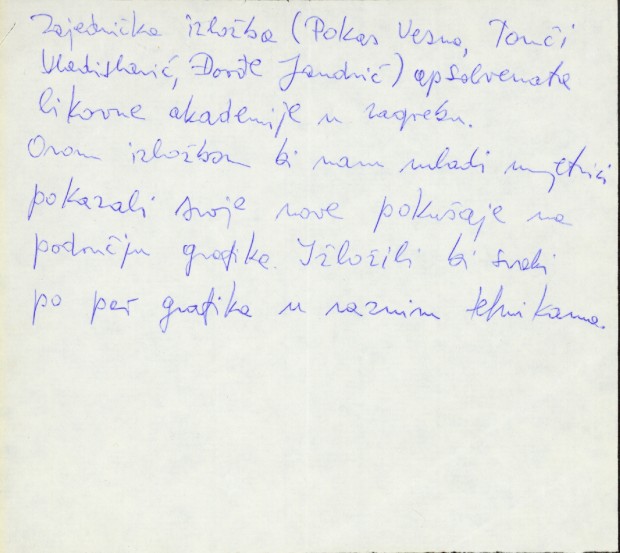 Zajednička izložba (Pokas Vesna, Tonči
Vladislavić, Đorđe Jandrić) apsolvenata
likovne akademije u zagrebu.
Ovom izložbom bi nam mladi umjetnici
pokazali svoje nove pokušaje na
području grafike. Izložili bi svaki
po par grafika u raznim tehnikama.